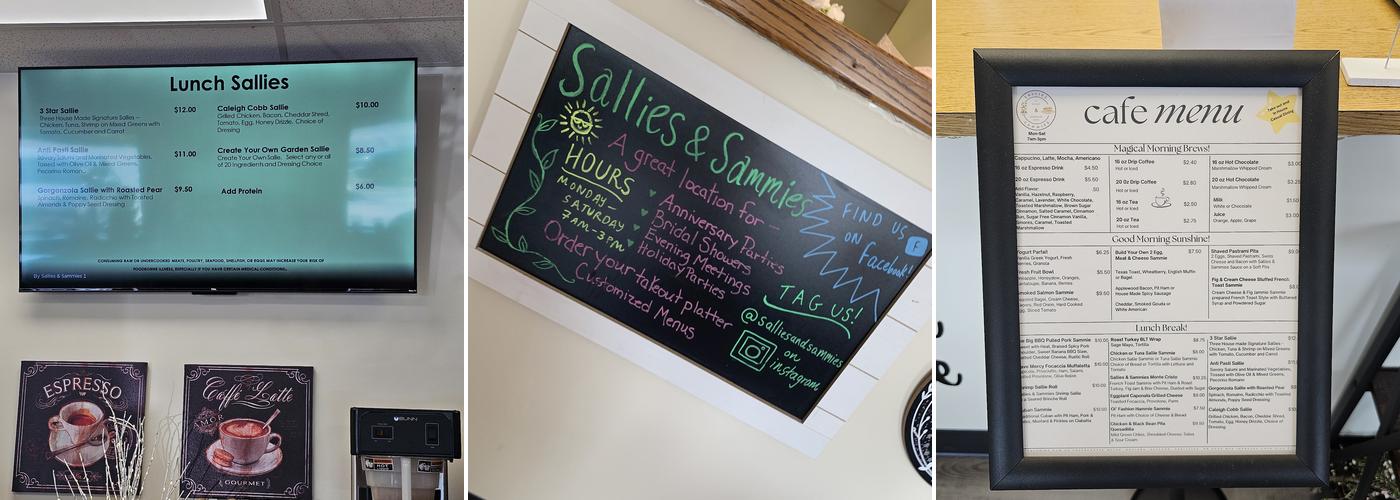 Lunch Sallies
3 Star Sallie $12.00
Three House Made Signature Sallies –
Chicken, Tuna, Shrimp on Mixed Greens with
Tomato, Cucumber and Carrot
Anti Pasti Sallie $11.00
Savory Salumi and Marinated Vegetables,
Tossed with Olive Oil & Mixed Greens,
Pecorino Romano
Gorgonzola Sallie with Roasted Pear $9.50
Spinach, Romaine, Radicchio with Toasted
Almonds & Poppy Seed Dressing
Caleigh Cobb Sallie $10.00
Grilled Chicken, Bacon, Cheddar Shred,
Tomato, Egg, Honey Drizzle, Choice of
Dressing
Create Your Own Garden Sallie $8.50
Create Your Own Salle. Select any or all
of 20 Ingredients and Dressing Choice
Add Protein $6.00
CONSUMING RAW OR UNDERCOOKED MEATS, POULTRY, SEAFOOD, SHELLFISH, OR EGGS MAY INCREASE YOUR RISK OF
FOODBORNE ILLNESS, ESPECIALLY IF YOU HAVE CERTAIN MEDICAL CONDITIONS.
By Sallies & Sammies 1
ESPRESSO
Caffé Latte
AMOR
GOURMET
BUNN
HOT
Sallies & Sammies
HOURS
MONDAY –
SATURDAY
7AM–3PM
A great location for –
Anniversary Parties
Bridal Showers
Evening Meetings
Holiday Parties
Order your takeout platter
Customized Menus
FIND US
ON
Facebook!
f
TAG US!
@salliesandsammies
on
instagram
cafe menu
Mon-Sat
7am-3pm
Take out and
Casual Dining
Magical Morning Brews!
Cappucino, Latte, Mocha, Americano
16 oz Espresso Drink $4.50
20 oz Espresso Drink $5.50
Add Flavor: .50
Vanilla, Hazelnut, Raspberry,
Caramel, Lavender, White Chocolate,
Toasted Marshmallow, Brown Sugar
Cinnamon, Salted Caramel, Cinnamon
Bun, Sugar Free Cinnamon Vanilla,
Smores, Caramel, Toasted
Marshmallow
16 oz Drip Coffee $2.40
Hot or Iced
20 0z Drip Coffee $2.80
Hot or Iced
16 oz Tea
Hot or Iced
20 oz Tea $2.75
16 oz Hot Chocolate
Marshmallow Whipped Cream
20 oz Hot Chocolate
Marshmallow Whipped Cream
Milk
White or Chocolate
Juice
Orange, Apple, Grape
Good Morning Sunshine!
Yogurt Parfait $6.25
Vanilla Greek Yogurt, Fresh
Berries, Granola
Fresh Fruit Bowl $5.50
Pineapple, Honeydew, Oranges,
Cantaloupe, Banana, Berries
Smoked Salmon Sammie $9.50
Bagel, Cream Cheese,
Capers, Red Onion, Hard Cooked
Egg, Sliced Tomato
Build Your Own 2 Egg, $7.50
Meat & Cheese Sammie
Texas Toast, Wheatberry, English Muffin
or Bagel
Applewood Bacon, Pit Ham or
House Made Spicy Sausage
Cheddar, Smoked Gouda or
White American
Shaved Pastrami Pita
2 Eggs, Shaved Pastrami, Swiss
Cheese and Bacon with Sallies &
Sammies Sauce on a Soft Pita
Fig & Cream Cheese Stuffed French
Toast Sammie
Cream Cheese & Fig Jammie Sammie
prepared French Toast Style with Buttered
Syrup and Powdered Sugar
Lunch Break!
Big BBQ Pulled Pork Sammie
Shrimp Sallie Roll
Roast Turkey BLT Wrap $8.75
Sage Mayo, Tortilla
Chicken or Tuna Sallie Sammie
Chicken Sallie Sammie or Tuna Sallie Sammie
Choice of Bread or Tortilla with Lettuce and
Tomato
Sallies & Sammies Monte Cristo
French Toast Sammie with Pit Ham & Roast
Turkey, Fig Jam & Brie Cheese, Dusted with Sugar
Eggplant Caponata Grilled Cheese
Toasted Focaccia, Provolone, Parm
Ol' Fashion Hammie Sammie $7.50
Pit Ham with Choice of Cheese & Bread
Chicken & Black Bean Pita
Quesadilla
Mild Green Chiles, Shredded Cheese, Salsa
& Sour Cream
3 Star Sallie
Three House made Signature Sallies -
Chicken, Tuna & Shrimp on Mixed Greens
with Tomato, Cucumber and Carrot
Anti Pasti Sallie
Savory Salumi and Marinated Vegetables,
Tossed with Olive Oil & Mixed Greens,
Pecorino Romano
Gorgonzola Sallie with Roasted Pear
Spinach, Romaine, Radicchio with Toasted
Almonds, Poppy Seed Dressing
Caleigh Cobb Sallie
Grilled Chicken, Bacon, Cheddar Shred,
Tomato, Egg, Honey Drizzle, Choice of
Dressing